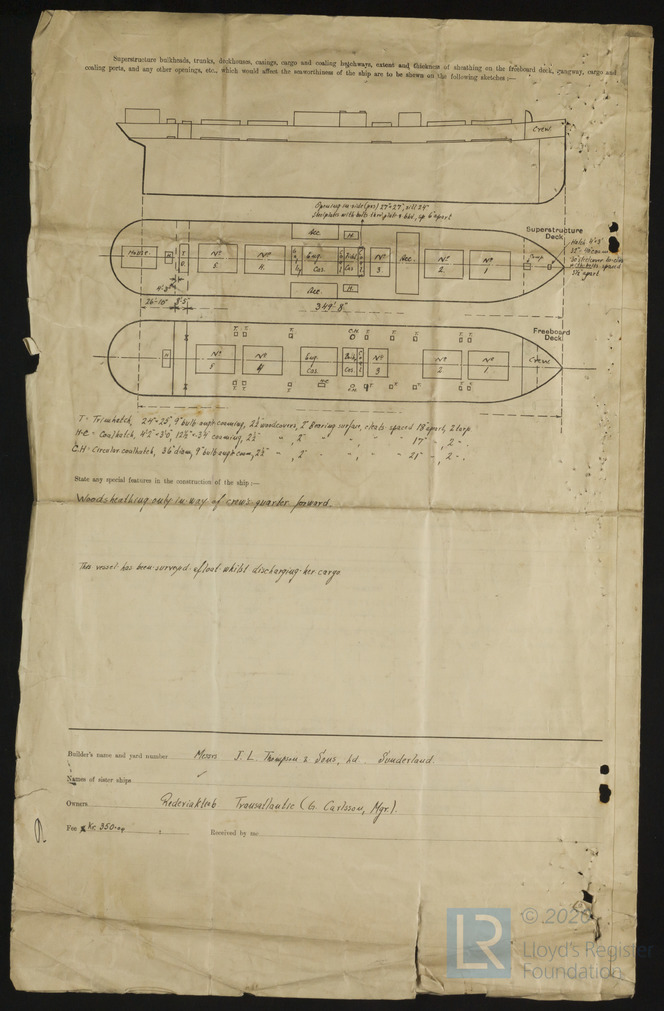 Superstructure bulkheads, trunks, deckhouses, casings, cargo and coaling hatchways, extent and thickness of sheathing on the freeboard deck, gangway, cargo and
coaling ports, and any other openings, etc., which would affect the seaworthiness of the ship are to be shewn on the following sketches :—
Crew.
Opening in side (pns) 27"×27", sill 24"
Steelplate with bolts thro' plate & bhd, sp 6" apart
Superstructure
Deck
Acc.
H.
House
H
Nº
5
Nº
4
Eng.
Cas.
Nº
3
Acc.
Nº
2
Nº
1
Acc.
H.
Hatch 4'×3'
4'-3"
26'-10"
8'-5"
349'-8"
Freeboard
Deck
T. T.
T.
C.H.
T.
H
Nº
5
Nº
4
Eng.
Cas.
Nº
3
Nº
2
Nº
1
Crew
T - Trimhatch, 24"×25", 9" bulb angle coaming, 2½" woodcovers, 2" Bearing surface, cleats spaced 18" apart, 2 tarp.
H.C - Coalhatch, 4'2"×3'0", 2½" - 2" 17" 2
C.H - Circular coalhatch, 36" diam, 9" bulb angle coam, 2½" - 2" 21" 2
State any special features in the construction of the ship :—
Woodsheathing only in way of crew's quarter forward.
This vessel has been surveyed afloat whilst discharging her cargo
Builder's name and yard number Messrs J. L. Thompson & Sons, Ld. Sunderland.
Names of sister ships
Owners Rederiaktieb Transatlantic (G. Carlsson, Mgr).
Fee Kr. 350.00 : : Received by me
LR
© 2026
Lloyd's Register
Foundation